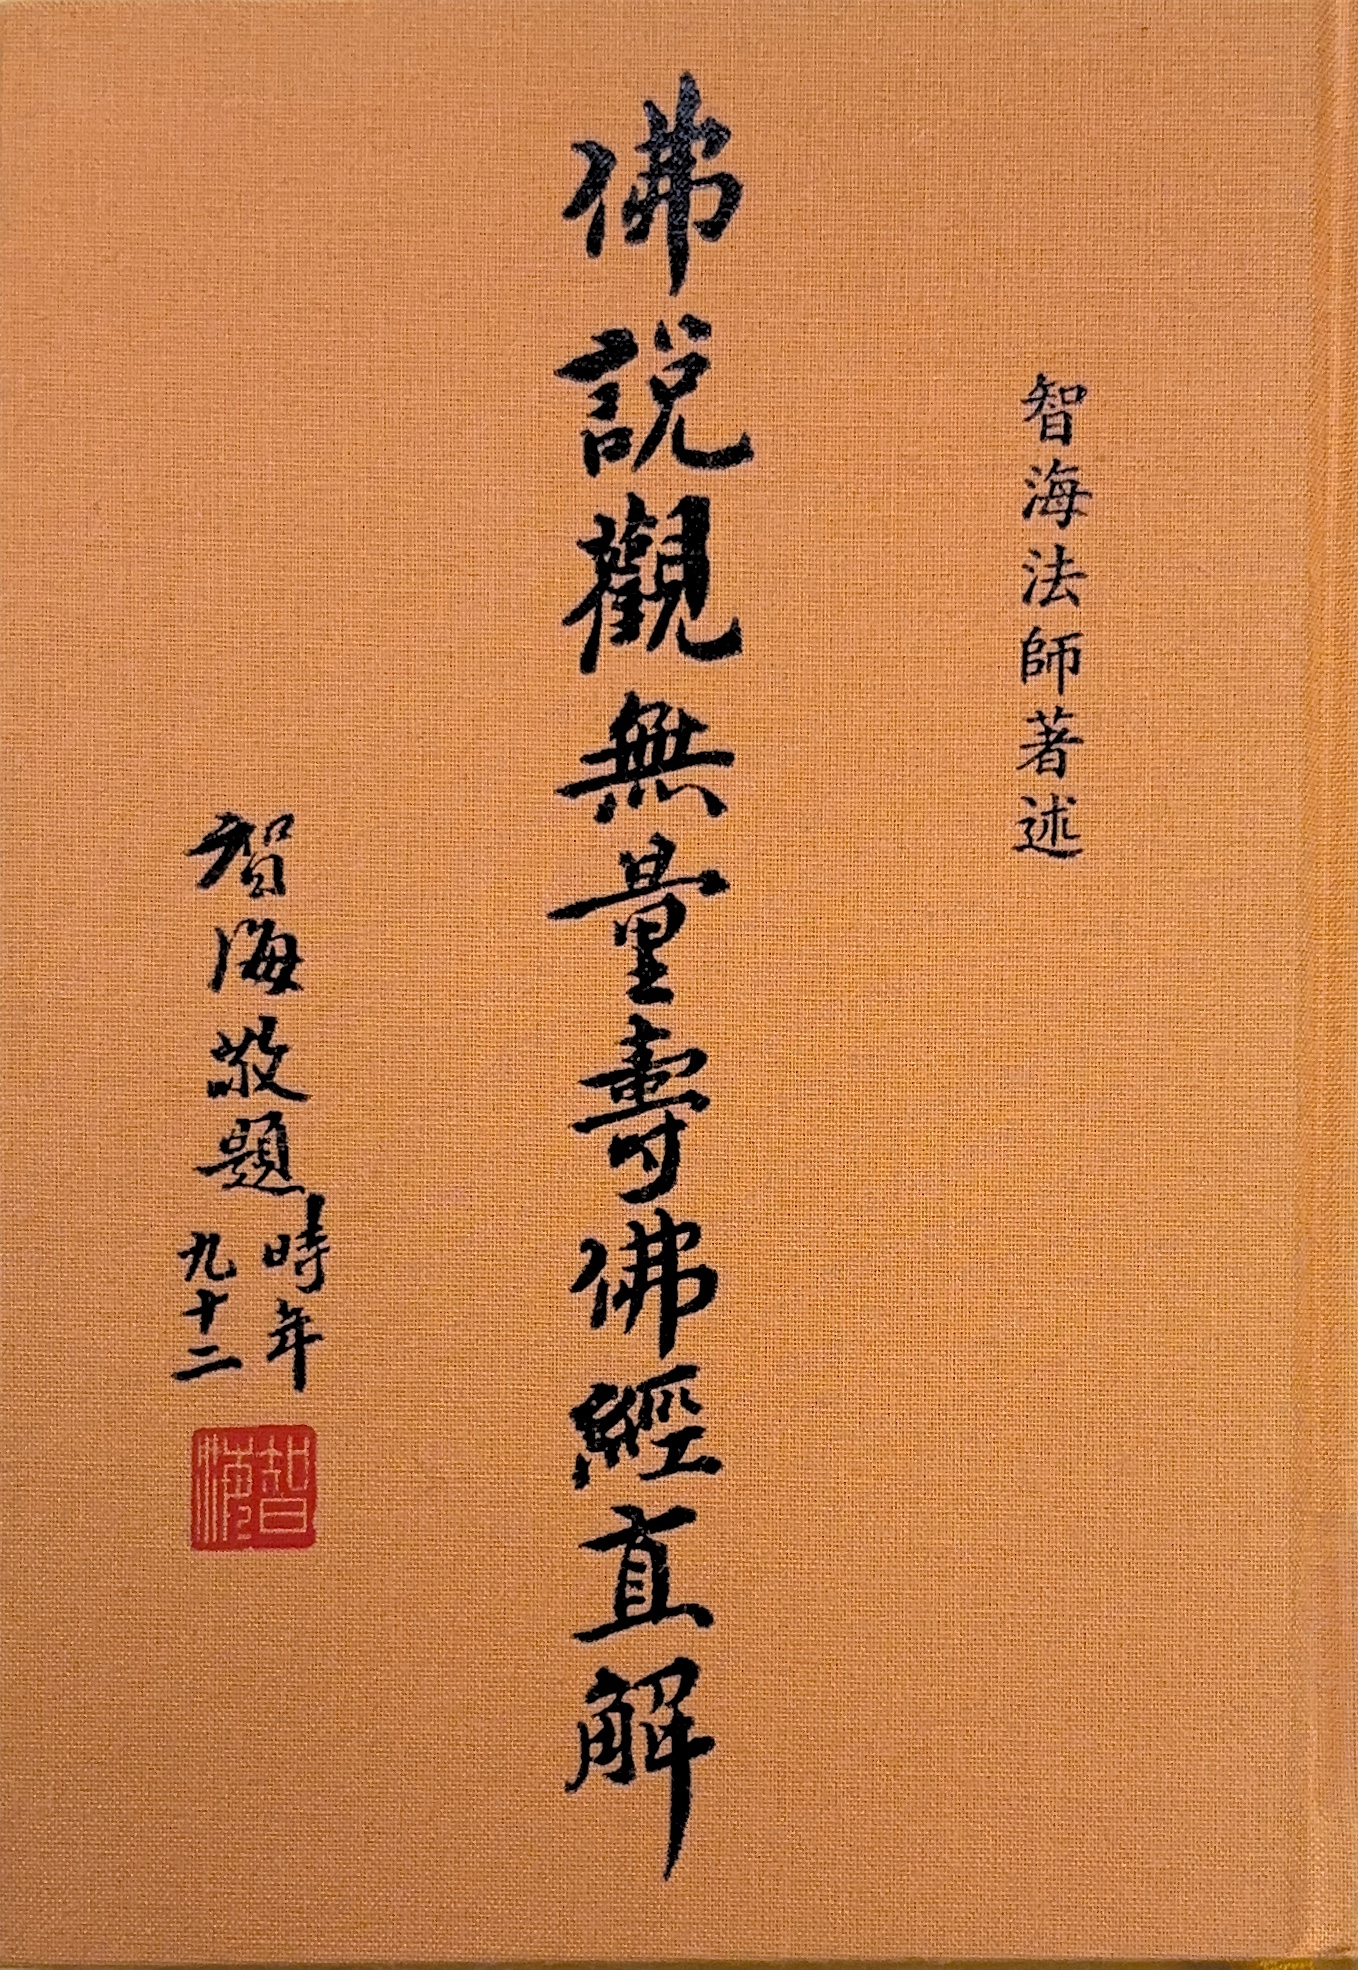 智海法師著述
佛說觀無量壽佛經直解
智海敬題
時年
九十二
智海